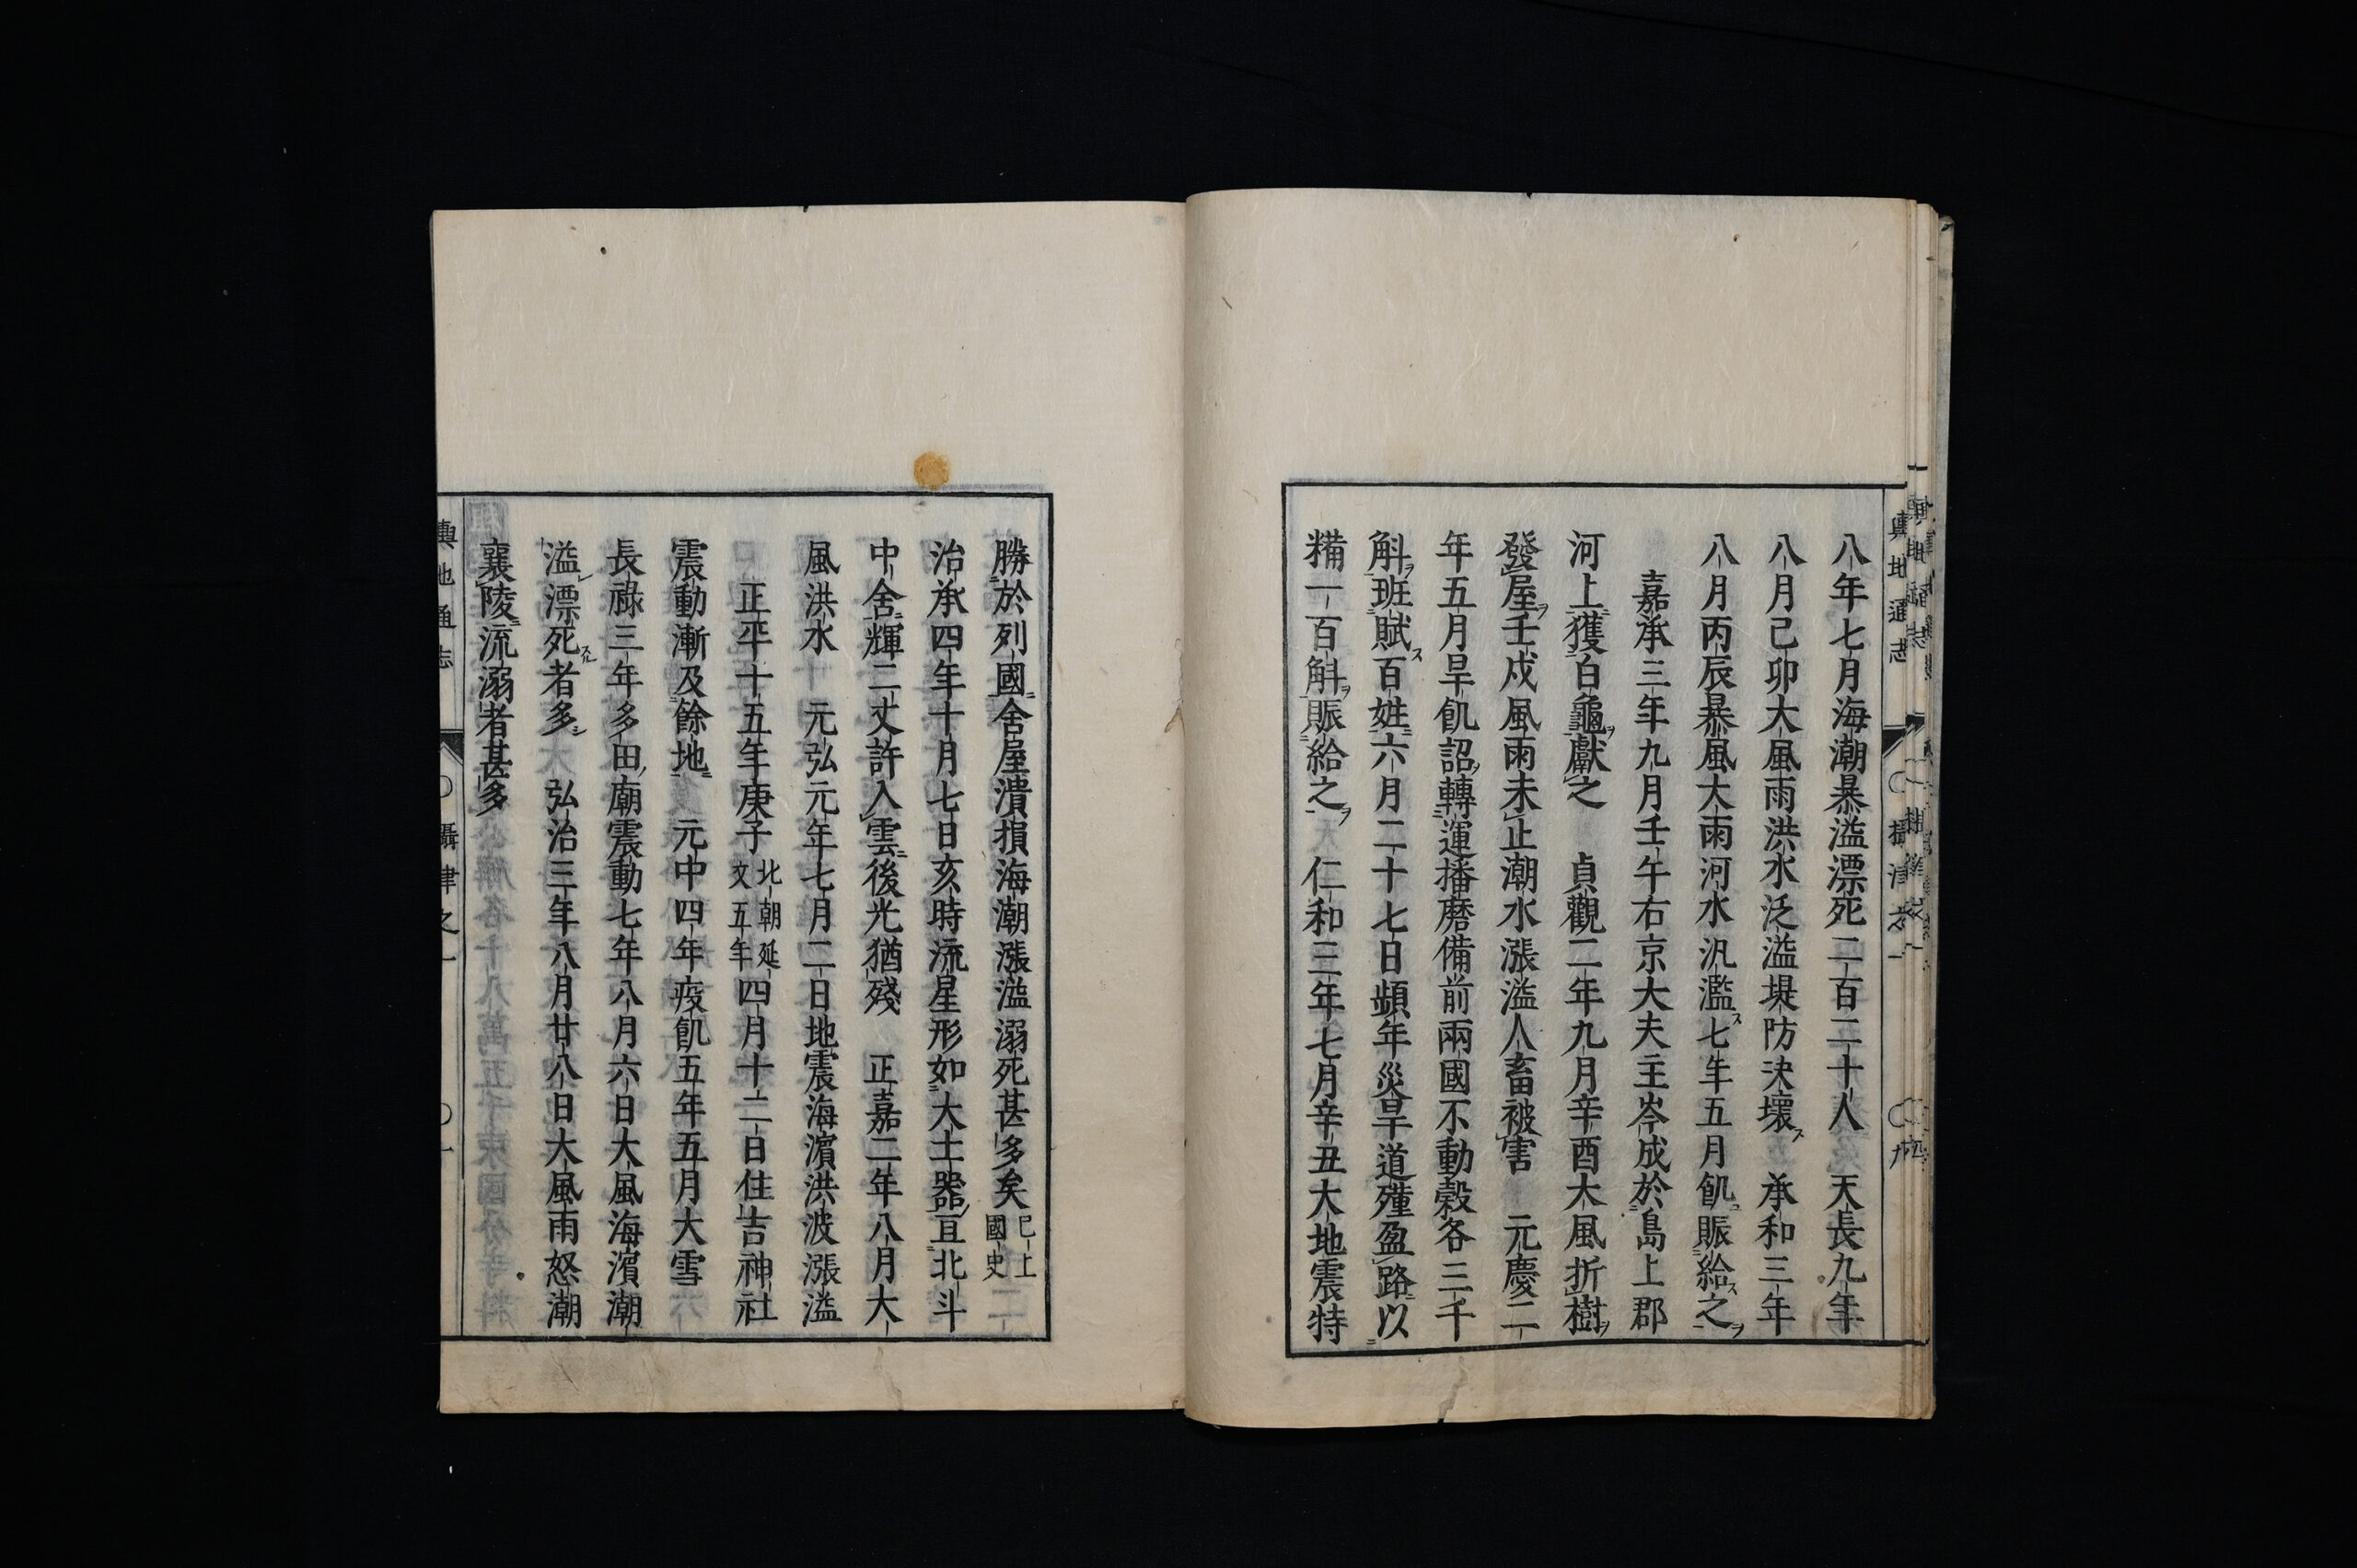 八年七月海潮暴溢漂死二百二十人　天長九年
八月己卯大風雨洪水泛溢堤防決壞ス　承和三年
八月丙辰暴風大雨河水汎濫ス七年五月飢賑給ス之ヲ
嘉承三年九月壬午右京大夫主岑成於島上郡
河上獲白龜ヲ獻之　貞觀二年九月辛酉大風折樹ヲ
發屋ヲ壬戍風雨未止潮水漲溢人畜被害　元慶二
年五月旱飢詔轉運播磨備前兩國不動穀各三千
斛ヲ班賦ス百姓六月二十七日頻年災旱道殣盈路以
糒一百斛ヲ賑給之ヲ　仁和三年七月辛丑大地震特
勝於列國舍屋潰損海潮漲溢溺死甚多矣巳上國史
治承四年十月七日亥時流星形如大土器亘北斗
中舍輝二丈許入雲後光猶殘　正嘉二年八月大
風洪水　元弘元年七月二日地震海濱洪波漲溢
正平十五年庚子北朝延文五年四月十二日住吉神社
震動漸及餘地　元中四年疫飢五年五月大雪
長祿三年多田廟震動七年八月六日大風海濱潮
溢漂死者多　弘治三年八月廿八日大風雨怒潮
襄陵流溺者甚多
輿地通志　攝津之一